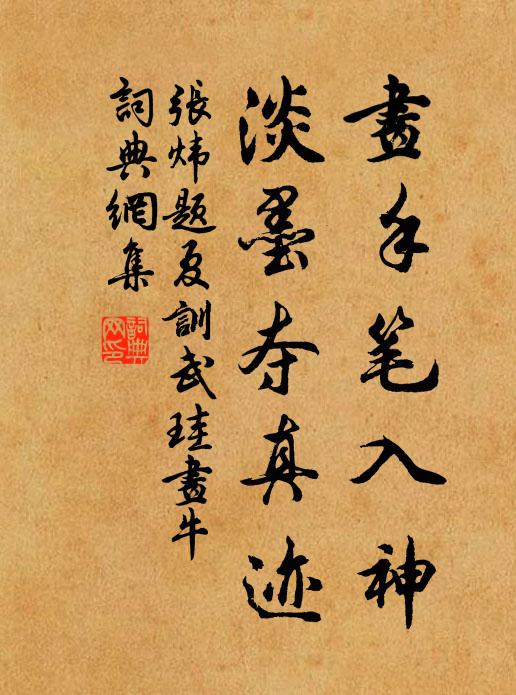 畫手笔入神
淡墨夺真迹
張炜题夏訓武珪畫牛
詞典網集
詞典
网印